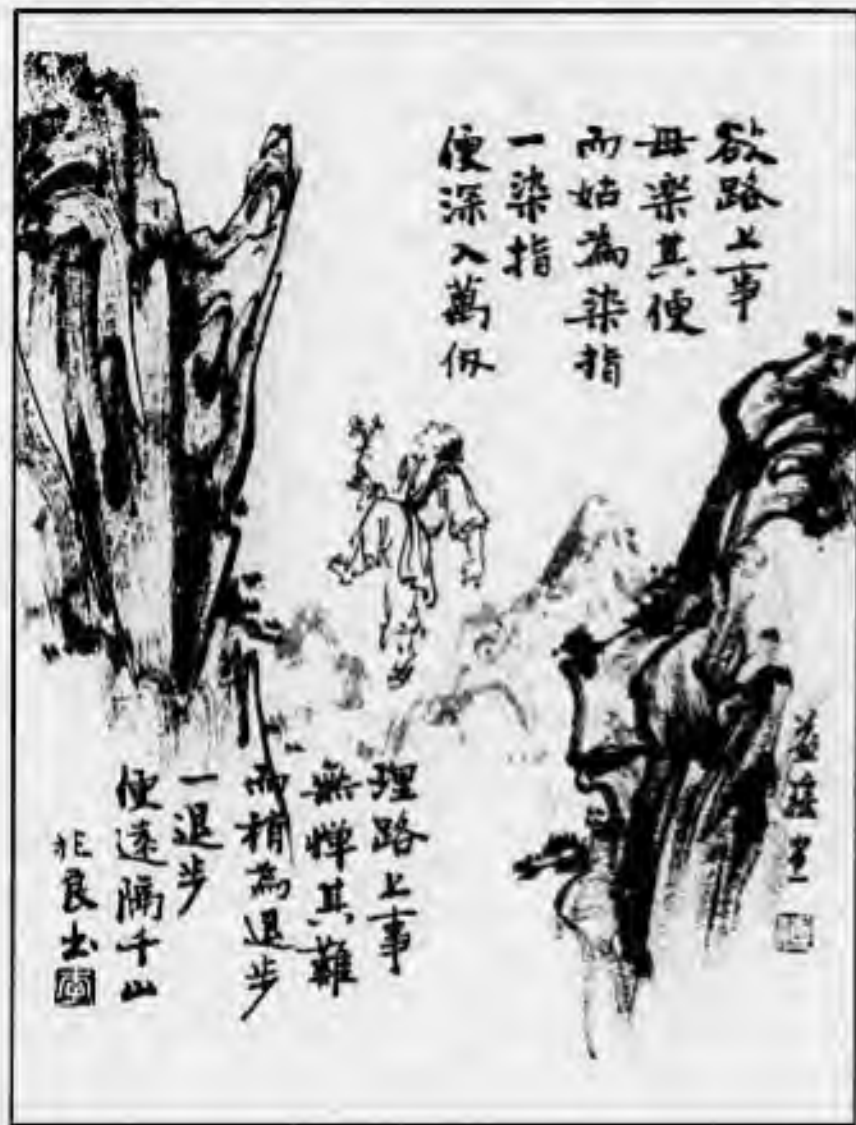 欲路上事
毋樂其便
而姑為染指
一染指
便深入萬仞
理路上事
無憚其難
而稍為退步
一退步
便遠隔千山